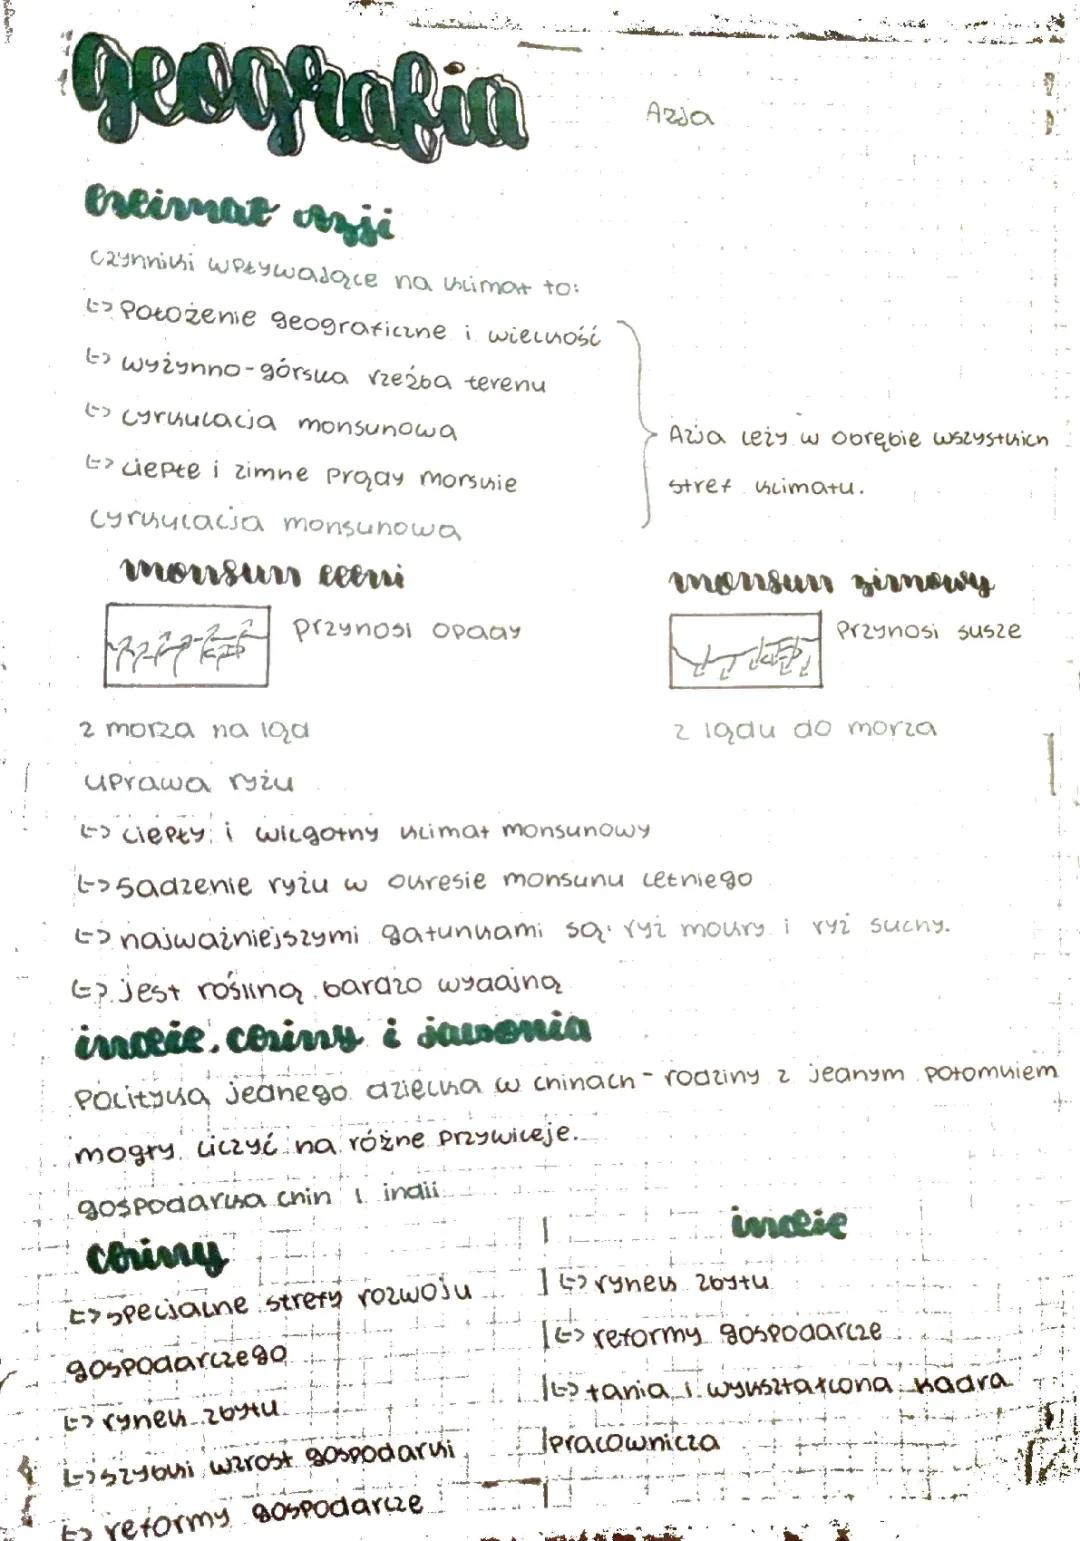 geografia
Azja
klimat azji
czynniki wpływające na klimat to:
↳ Położenie geograficzne i wielkość
↳ wyżynno-górska rzeźba terenu
↳ cyrkulacja monsunowa
↳ ciepłe i zimne prądy morskie
Azja leży w obrębie wszystkich
stref klimatu.
cyrkulacja monsunowa
monsun letni
monsun zimowy
przynosi opady
Przynosi susze
z morza na ląd
z lądu do morza
uprawa ryżu
↳ ciepły i wilgotny klimat monsunowy
↳ sadzenie ryżu w okresie monsunu letniego
↳ najważniejszymi gatunkami są: ryż mokry i ryż suchy.
↳ jest rośliną bardzo wydajną
indie, chiny i japonia
Polityka jednego dziecka w chinach - rodziny z jednym potomkiem
mogły liczyć na różne przywileje.
gospodarka chin i indii
chiny
↳ specjalne strefy rozwoju
gospodarczego
↳ rynek zbytu
↳ szybki wzrost gospodarki
↳ reformy gospodarcze
indie
↳ rynek zbytu
↳ reformy gospodarcze
↳ tania i wykształcona kadra
pracownicza